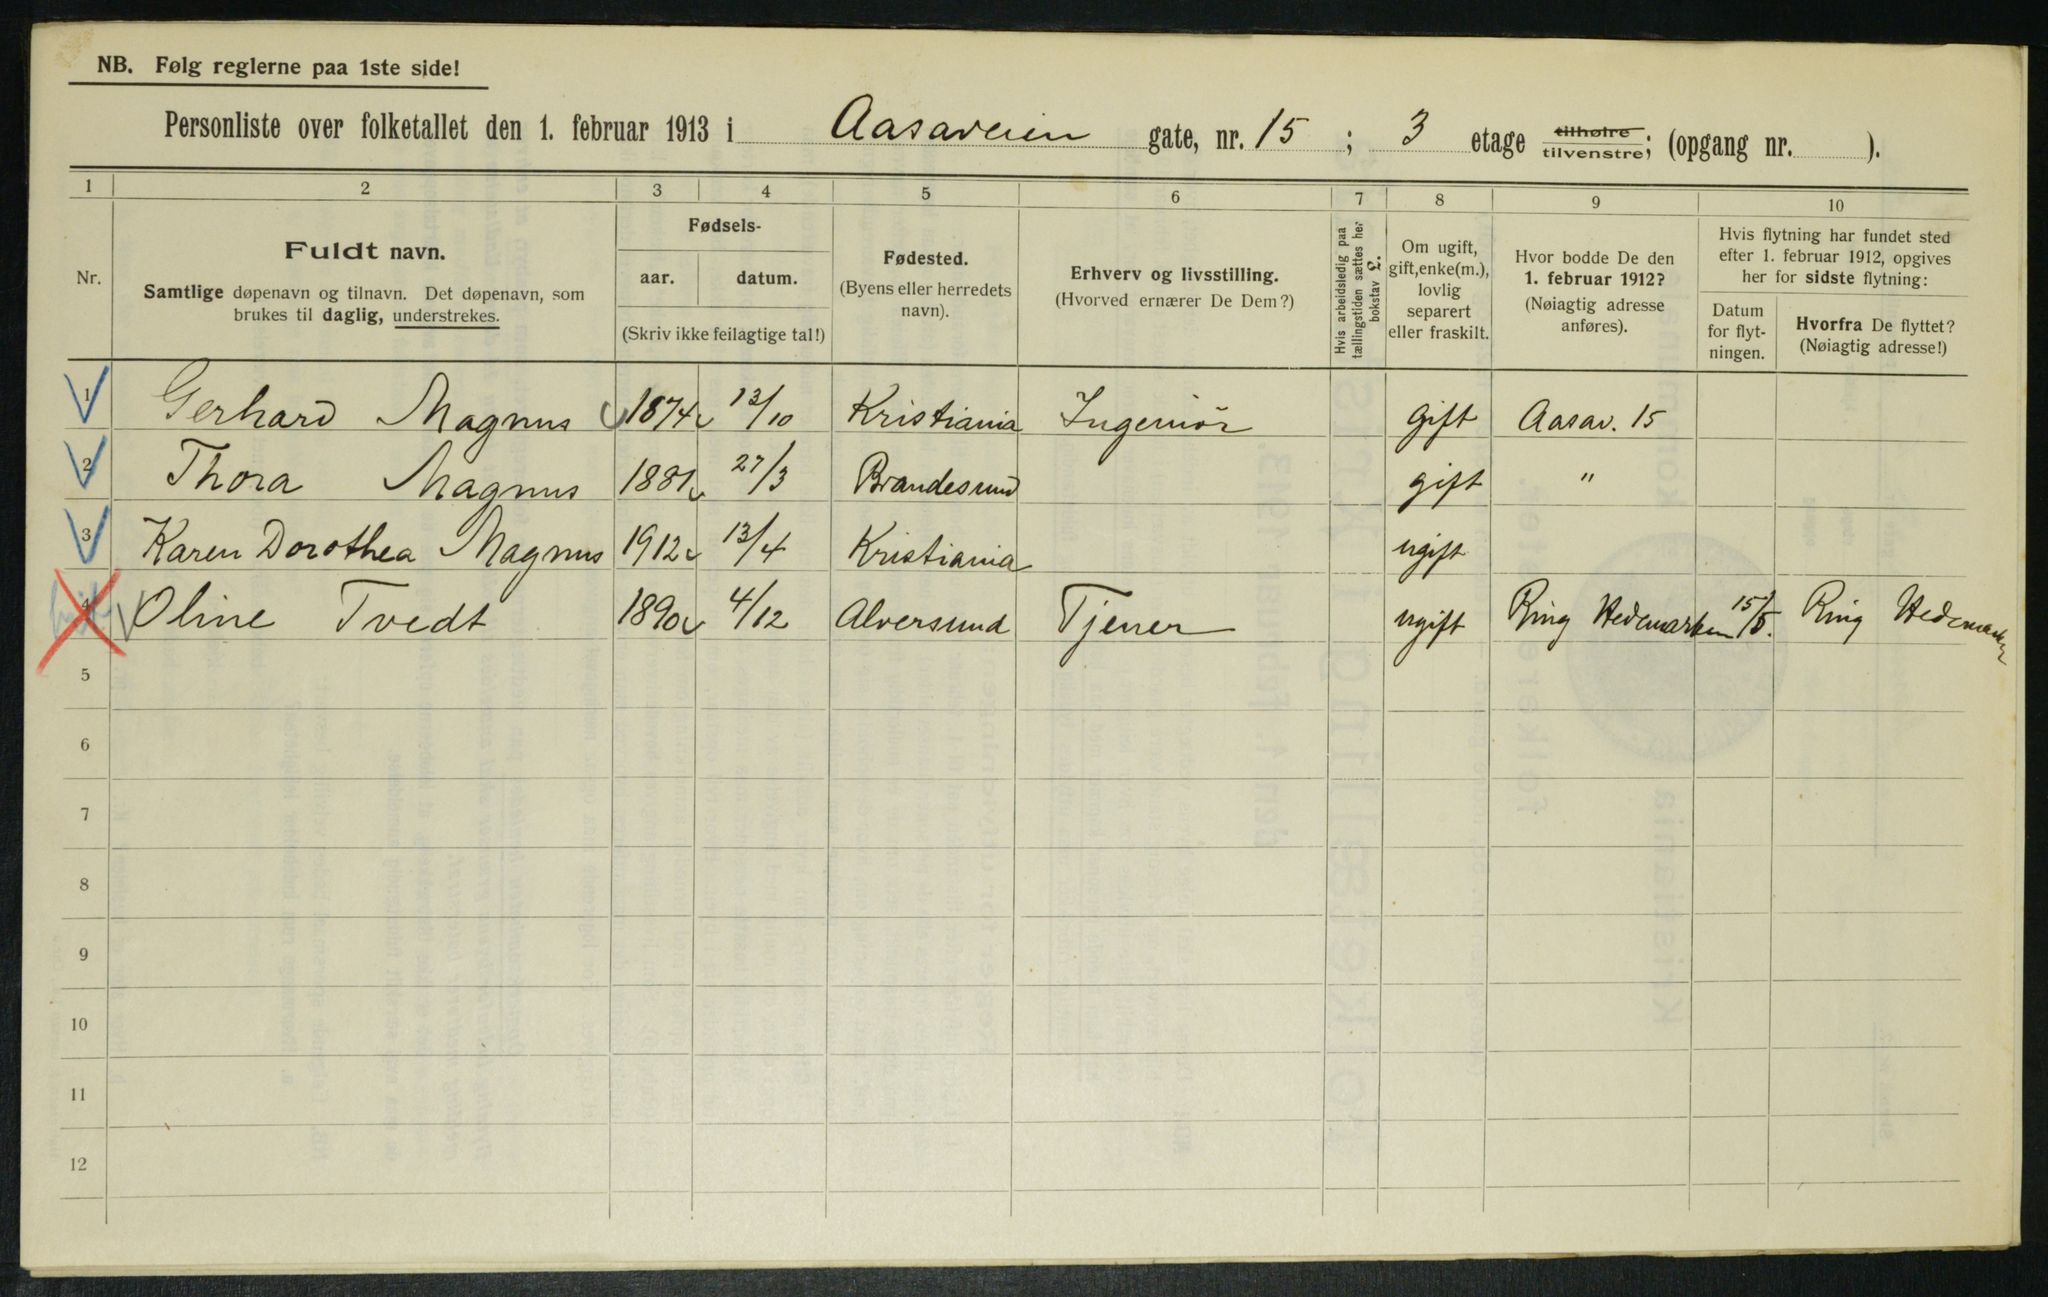 NB. Følg reglerne paa 1ste side!
Personliste over folketallet den 1. februar 1913 i Aasaveien gate, nr. 15 ; 3 etage tilhøire tilvenstre; (opgang nr. ).
1 2 3 4 5 6 7 8 9 10
Nr.
Fuldt navn.
Samtlige døpenavn og tilnavn. Det døpenavn, som
brukes til daglig, understrekes.
Fødsels-
aar. datum.
(Skriv ikke feilagtige tal!)
Fødested.
(Byens eller herredets
navn).
Erhverv og livsstilling.
(Hvorved ernærer De Dem?)
Hvis arbeidsledig paa
tællingstiden sættes her
bokstav L.
Om ugift,
gift, enke(m.),
lovlig
separert
eller fraskilt.
Hvor bodde De den
1. februar 1912?
(Nøiagtig adresse
anføres).
Hvis flytning har fundet sted
efter 1. februar 1912, opgives
her for sidste flytning:
Datum
for flyt-
ningen.
Hvorfra De flyttet?
(Nøiagtig adresse!)
1 Gerhard Magnus 1874 13/10 Kristiania Ingeniör gift Aasav. 15
2 Thora Magnus 1881 27/3 Brandesund gift "
3 Karen Dorothea Magnus 1912 13/4 Kristiania ugift
4 Oline Tvedt 1890 4/12 Alversund Tjener ugift Ring Hedemarken 15/5. Ring Hedemarken
5
6
7
8
9
10
11
12